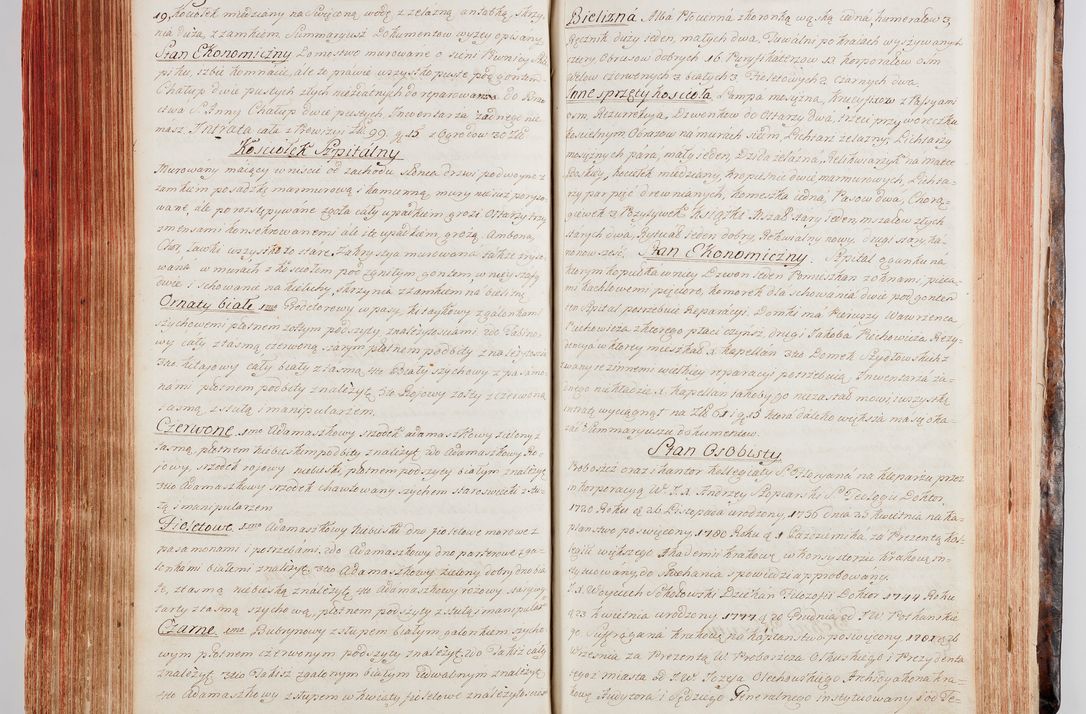 19. Kociołek miedziany na Święconą wodę z żelazną antabką, Skrzy-
nia duża z zamkiem, Summaryusz Dokumentow wyżey opisany
Stan Ekonomiczny Domostwo murowane o sieni Piwnicy
piku, izbie komnacie, ale to prawie wszystko puste pod gontem
Chałup dwie pustych złych niezdatnych do reparowania do
ctwa S. Anny Chałup dwie pustych Inventarza żadnego nie
masz. Intrata cała z Rewizyi Złł 99. g. 15
Kościołek Szpitálny
Murowany maiący wniście od zachodu Słonca drzwi podwoyne z
zamkiem posadzkę marmurową i kamienną, mury nieiuż poryso-
wane, ale porozstępywane zgoła cały upadkiem grozi Ołtarzy trzy
z mensami konsekrowanemi ale się upadkiem grożą. Ambona,
Chór, Ławki wszystko to stáre, Zakrystya murowana także zryso-
wana w murach z kościołem pod zgniłym gontem, w niey szafy
dwie i schowanie na kielichy, skrzynia z zamkiem na bieliznę
Ornaty białe 1mo w pasy, kitaykowy z galonkami
szychowemi płotnem żołtym podszyty z należytosciami 2do
wy cały z tasmą czerwoną szarym płotnem podbity z należytoscią
3tio Kitajowy cały biały z tasmą, 4to biały szychowy z pasamo-
nami płotnem podbity z należyt. 5to Rojowy żołty z czerwoną
tasmą, z stułą i manipularzem.
Czerwone. 1mo Adamaszkowy srzodek adamaszkowy zielony z
tasmą, płotnem niebieskim podbity z należyt. 2do Adamaszkowy Ro-
jowy, srzodek rojowy niebieski, płotnem podszyty białym z należyt.
3tio Adamaszkowy srzodek chawtowany szychem staroswiecki z stu-
łą i manipularzem
Fioletowe. 1mo Adamaszkowy niebieski dno fioletowe morowe z
pasamonami i potrzebami, 2do Adamaszkowy dno pąsowe z ga-
lonkami białemi z należyt. 3tio Adamaszkowy zielony dobry dno bia-
łe, z tasmą niebieską z należyt. 4to Adamaszkowy rożowy stary wy-
tarty z tasmą szychową, płotnem podszyty z stułą i manipular.
Czarne. 1mo z słupem białym galonkiem szycho-
wym płotnem czerwonym podszyty z należyt. 2do Takiż cały
z należyt. 3tio Takiż z galonym białym iedwabnym z należyt.
4to Adamaszkowy z słupem w kwiaty fioletowe z należytosciá
Bielizná. Alba Płocienna z koronką wąską iedná humerałow 3.
Ręcznik duży ieden, małych dwa, Tuwalni po kraiach wyszywanych
cztery, Obrusow dobrych 16. Puryfikaterzow 12. korporałow osm.
Welow czerwonych 3. białych 3. Fioletowych 2. czarnych dwa.
Inne sprzęty kościoła. Lampa mosiężna, Krucyfixow z Passyami
osm, Rezurekcya, Dzwonkow do Ołtarzy dwa, trzeci przy woreczku
kościelnym, Obrazow na murach siedm, Lichtarz żelazny, Lichtarzy
mosiężnych pára, mały ieden, Dzida żelazna, Relikwiarzyk na Matce
Boskiey, kociełek miedziany, kropielnic dwie marmurowych, Lichta-
rzy par pięć drewnianych, komeszka iedná, Pasow dwa, Chorą-
giewek 2. Pozytywek. Książki. Mszał stary ieden, mszałow złych
starych dwa, Rytuał ieden dobry, Rekwialny nowy, drugi stary Ka-
nonow sześć. Stan Ekonomiczny. Szpital o gonku na
ktorym kopułka w niey Dzwon ieden Pomieszkań z oknami pieca-
mi kachlowemi pięciora, komorek dla schowania dwie pod gontem
ten szpital potrzebuie Reparacyi. Domki ma Pierwszy Wawrzenca
Piechowicza z ktorego płaci czynsz, drugi Jakoba Piechowicza, Rezy-
dencya w ktorey mieszkał X. Kapellan 3tio Domek Szydłowskich z
zwany te zimnemi wielkiey reparacyi potrzebuią, Inwentarza ża-
dnego nakładzie X. kapellan iakoby go nie zastał mowi, wszystkę
intratę wyciągnął na Złł. 61 i g. 15. ktora daleko większa ma się oka-
zać z Summaryuszu dokumentow.
Stan Osobisty
Proboszcz oraz i kantor kollegiaty S. Floryana na kleparzu przez
inkorporacyą W. J. X. Andrzey Szopiarski S. Teologii Doktor
1730. Roku d. 26. Listopada urodzony, 1756 dnia 25. kwietnia na ka-
płanstwo poswięcony, 1780 Roku d. 1 Pazdziernika, za Prezentą kol-
legii większego Akademii krakows. w konsystorzu krakows. in-
stytuowany, do Słuchania spowiedzi approbowany.
J. X. Woyciech Sokołowski Dziekan Filozofii Doktor 1744 Roku
d. 23. kwietnia urodzony, 1777 d. 20 Grudnia od J. W. Potkańskie-
go Suffragana Krakows. na kapłanstwo poswięcony, 1781 d. 26
Września za Prezentą W. Proboszcza Olkuskiego i Prezydenta
tegoż miasta od J. W. Jozefa Olechowskiego Archidyakona kra-
kows. Audytora i sędziego Generalnego instytuowany